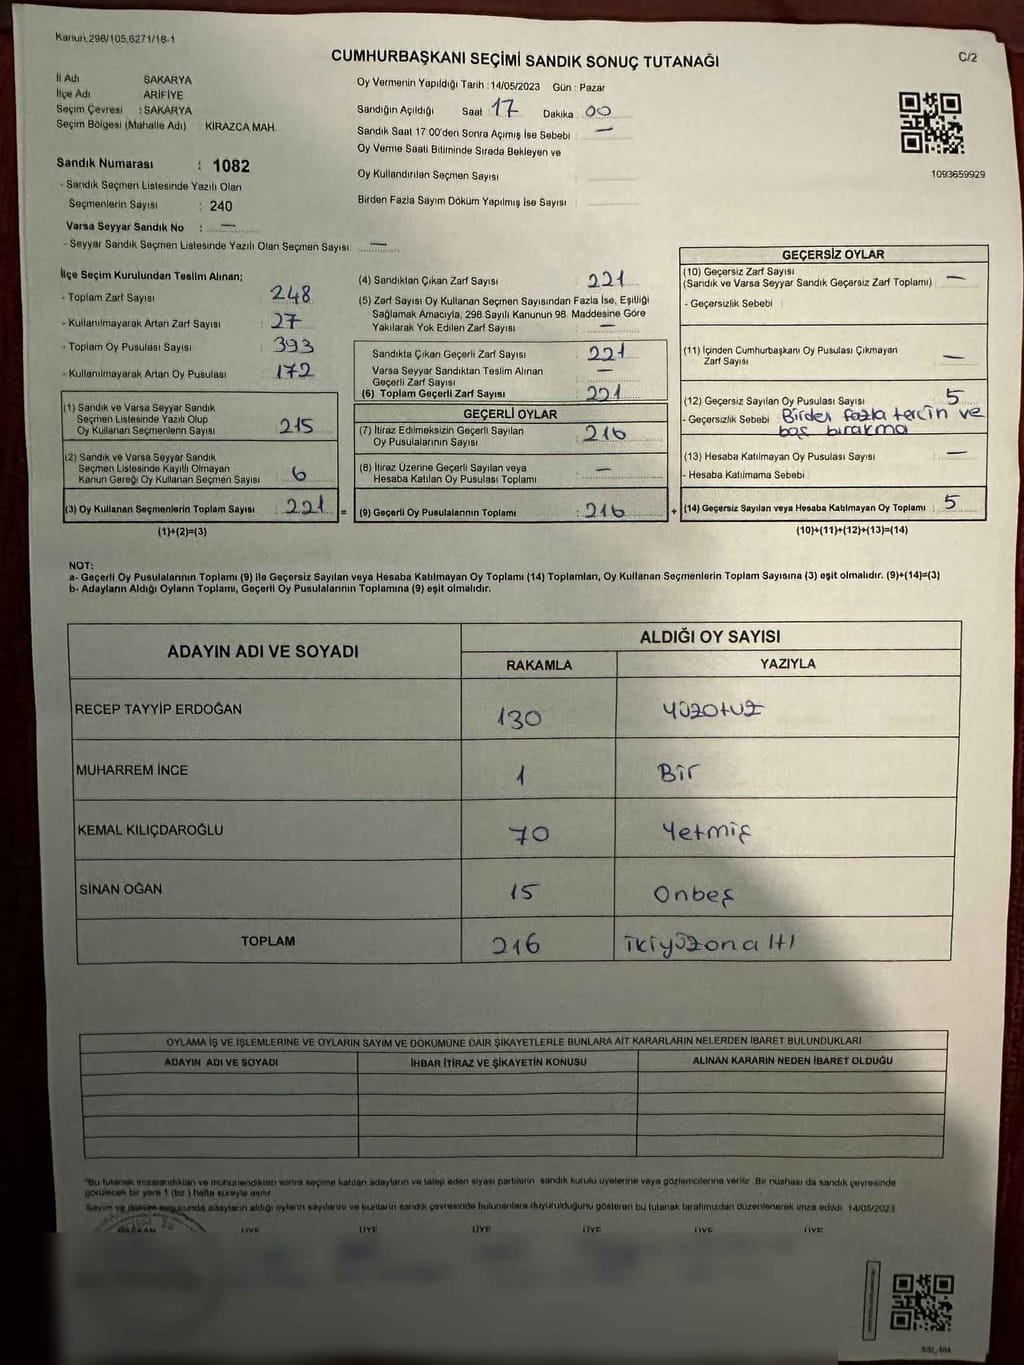 Kanun.298/105,6271/18-1
CUMHURBAŞKANI SEÇİMİ SANDIK SONUÇ TUTANAĞI
C/2
İl Adı SAKARYA
İlçe Adı ARİFİYE
Seçim Çevresi : SAKARYA
Seçim Bölgesi (Mahalle Adı) KİRAZCA MAH.
Oy Vermenin Yapıldığı Tarih :14/05/2023 Gün : Pazar
Sandığın Açıldığı Saat 17 Dakika 00
Sandık Saat 17:00'den Sonra Açımış İse Sebebi : —
Oy Verme Saati Bitiminde Sırada Bekleyen ve
Oy Kullandırılan Seçmen Sayısı
Birden Fazla Sayım Döküm Yapılmış İse Sayısı
1093659929
Sandık Numarası : 1082
- Sandık Seçmen Listesinde Yazılı Olan
Seçmenlerin Sayısı : 240
Varsa Seyyar Sandık No : —
- Seyyar Sandık Seçmen Listesinde Yazılı Olan Seçmen Sayısı: —
İlçe Seçim Kurulundan Teslim Alınan;
- Toplam Zarf Sayısı : 248
- Kullanılmayarak Artan Zarf Sayısı : 27
- Toplam Oy Pusulası Sayısı : 393
- Kullanılmayarak Artan Oy Pusulası : 172
(1) Sandık ve Varsa Seyyar Sandık
Seçmen Listesinde Yazılı Olup
Oy Kullanan Seçmenlerin Sayısı : 215
(2) Sandık ve Varsa Seyyar Sandık
Seçmen Listesinde Kayıtlı Olmayan
Kanun Gereği Oy Kullanan Seçmen Sayısı : 6
(3) Oy Kullanan Seçmenlerin Toplam Sayısı : 221 =
(1)+(2)=(3)
(4) Sandıktan Çıkan Zarf Sayısı 221
(5) Zarf Sayısı Oy Kullanan Seçmen Sayısından Fazla İse, Eşitliği
Sağlamak Amacıyla, 298 Sayılı Kanunun 98. Maddesine Göre
Yakılarak Yok Edilen Zarf Sayısı : —
Sandıkta Çıkan Geçerli Zarf Sayısı : 221
Varsa Seyyar Sandıktan Teslim Alınan
Geçerli Zarf Sayısı : —
(6) Toplam Geçerli Zarf Sayısı : 221
GEÇERLİ OYLAR
(7) İtiraz Edilmeksizin Geçerli Sayılan
Oy Pusulalarının Sayısı : 216
(8) İtiraz Üzerine Geçerli Sayılan veya
Hesaba Katılan Oy Pusulası Toplamı : —
(9) Geçerli Oy Pusulalarının Toplamı : 216 +
GEÇERSİZ OYLAR
(10) Geçersiz Zarf Sayısı
(Sandık ve Varsa Seyyar Sandık Geçersiz Zarf Toplamı) : —
- Geçersizlik Sebebi :
(11) İçinden Cumhurbaşkanı Oy Pusulası Çıkmayan
Zarf Sayısı : —
(12) Geçersiz Sayılan Oy Pusulası Sayısı : 5
- Geçersizlik Sebebi Birden fazla tercin ve
boş bırakma
(13) Hesaba Katılmayan Oy Pusulası Sayısı : —
- Hesaba Katılmama Sebebi :
(14) Geçersiz Sayılan veya Hesaba Katılmayan Oy Toplamı : 5
(10)+(11)+(12)+(13)=(14)
NOT:
a- Geçerli Oy Pusulalarının Toplamı (9) ile Geçersiz Sayılan veya Hesaba Katılmayan Oy Toplamı (14) Toplamları, Oy Kullanan Seçmenlerin Toplam Sayısına (3) eşit olmalıdır. (9)+(14)=(3)
b- Adayların Aldığı Oyların Toplamı, Geçerli Oy Pusulalarının Toplamına (9) eşit olmalıdır.
ADAYIN ADI VE SOYADI
ALDIĞI OY SAYISI
RAKAMLA YAZIYLA
RECEP TAYYİP ERDOĞAN 130 Yüzotuz
MUHARREM İNCE 1 Bir
KEMAL KILIÇDAROĞLU 70 Yetmiş
SİNAN OĞAN 15 Onbeş
TOPLAM 216 ikiyüzonaltı
OYLAMA İŞ VE İŞLEMLERİNE VE OYLARIN SAYIM VE DÖKÜMÜNE DAİR ŞİKAYETLERLE BUNLARA AİT KARARLARIN NELERDEN İBARET BULUNDUKLARI
ADAYIN ADI VE SOYADI İHBAR İTİRAZ VE ŞİKAYETİN KONUSU ALINAN KARARIN NEDEN İBARET OLDUĞU
"Bu tutanak imzalandıktan ve mühürlendikten sonra seçime katılan adayların ve talep eden siyasi partilerin sandık kurulu üyelerine veya gözlemcilerine verilir. Bir nushası da sandık çevresinde
görülecek bir yere 1 (bir) hafta süreyle asılır.
Sayım ve döküm sonucunda adayların aldığı oyların sayılarını ve bunların sandık çevresinde bulunanlara duyurulduğunu gösteren bu tutanak tarafımızdan düzenlenerek imza edildi. 14/05/2023
BAŞKAN ÜYE ÜYE ÜYE ÜYE ÜYE ÜYE